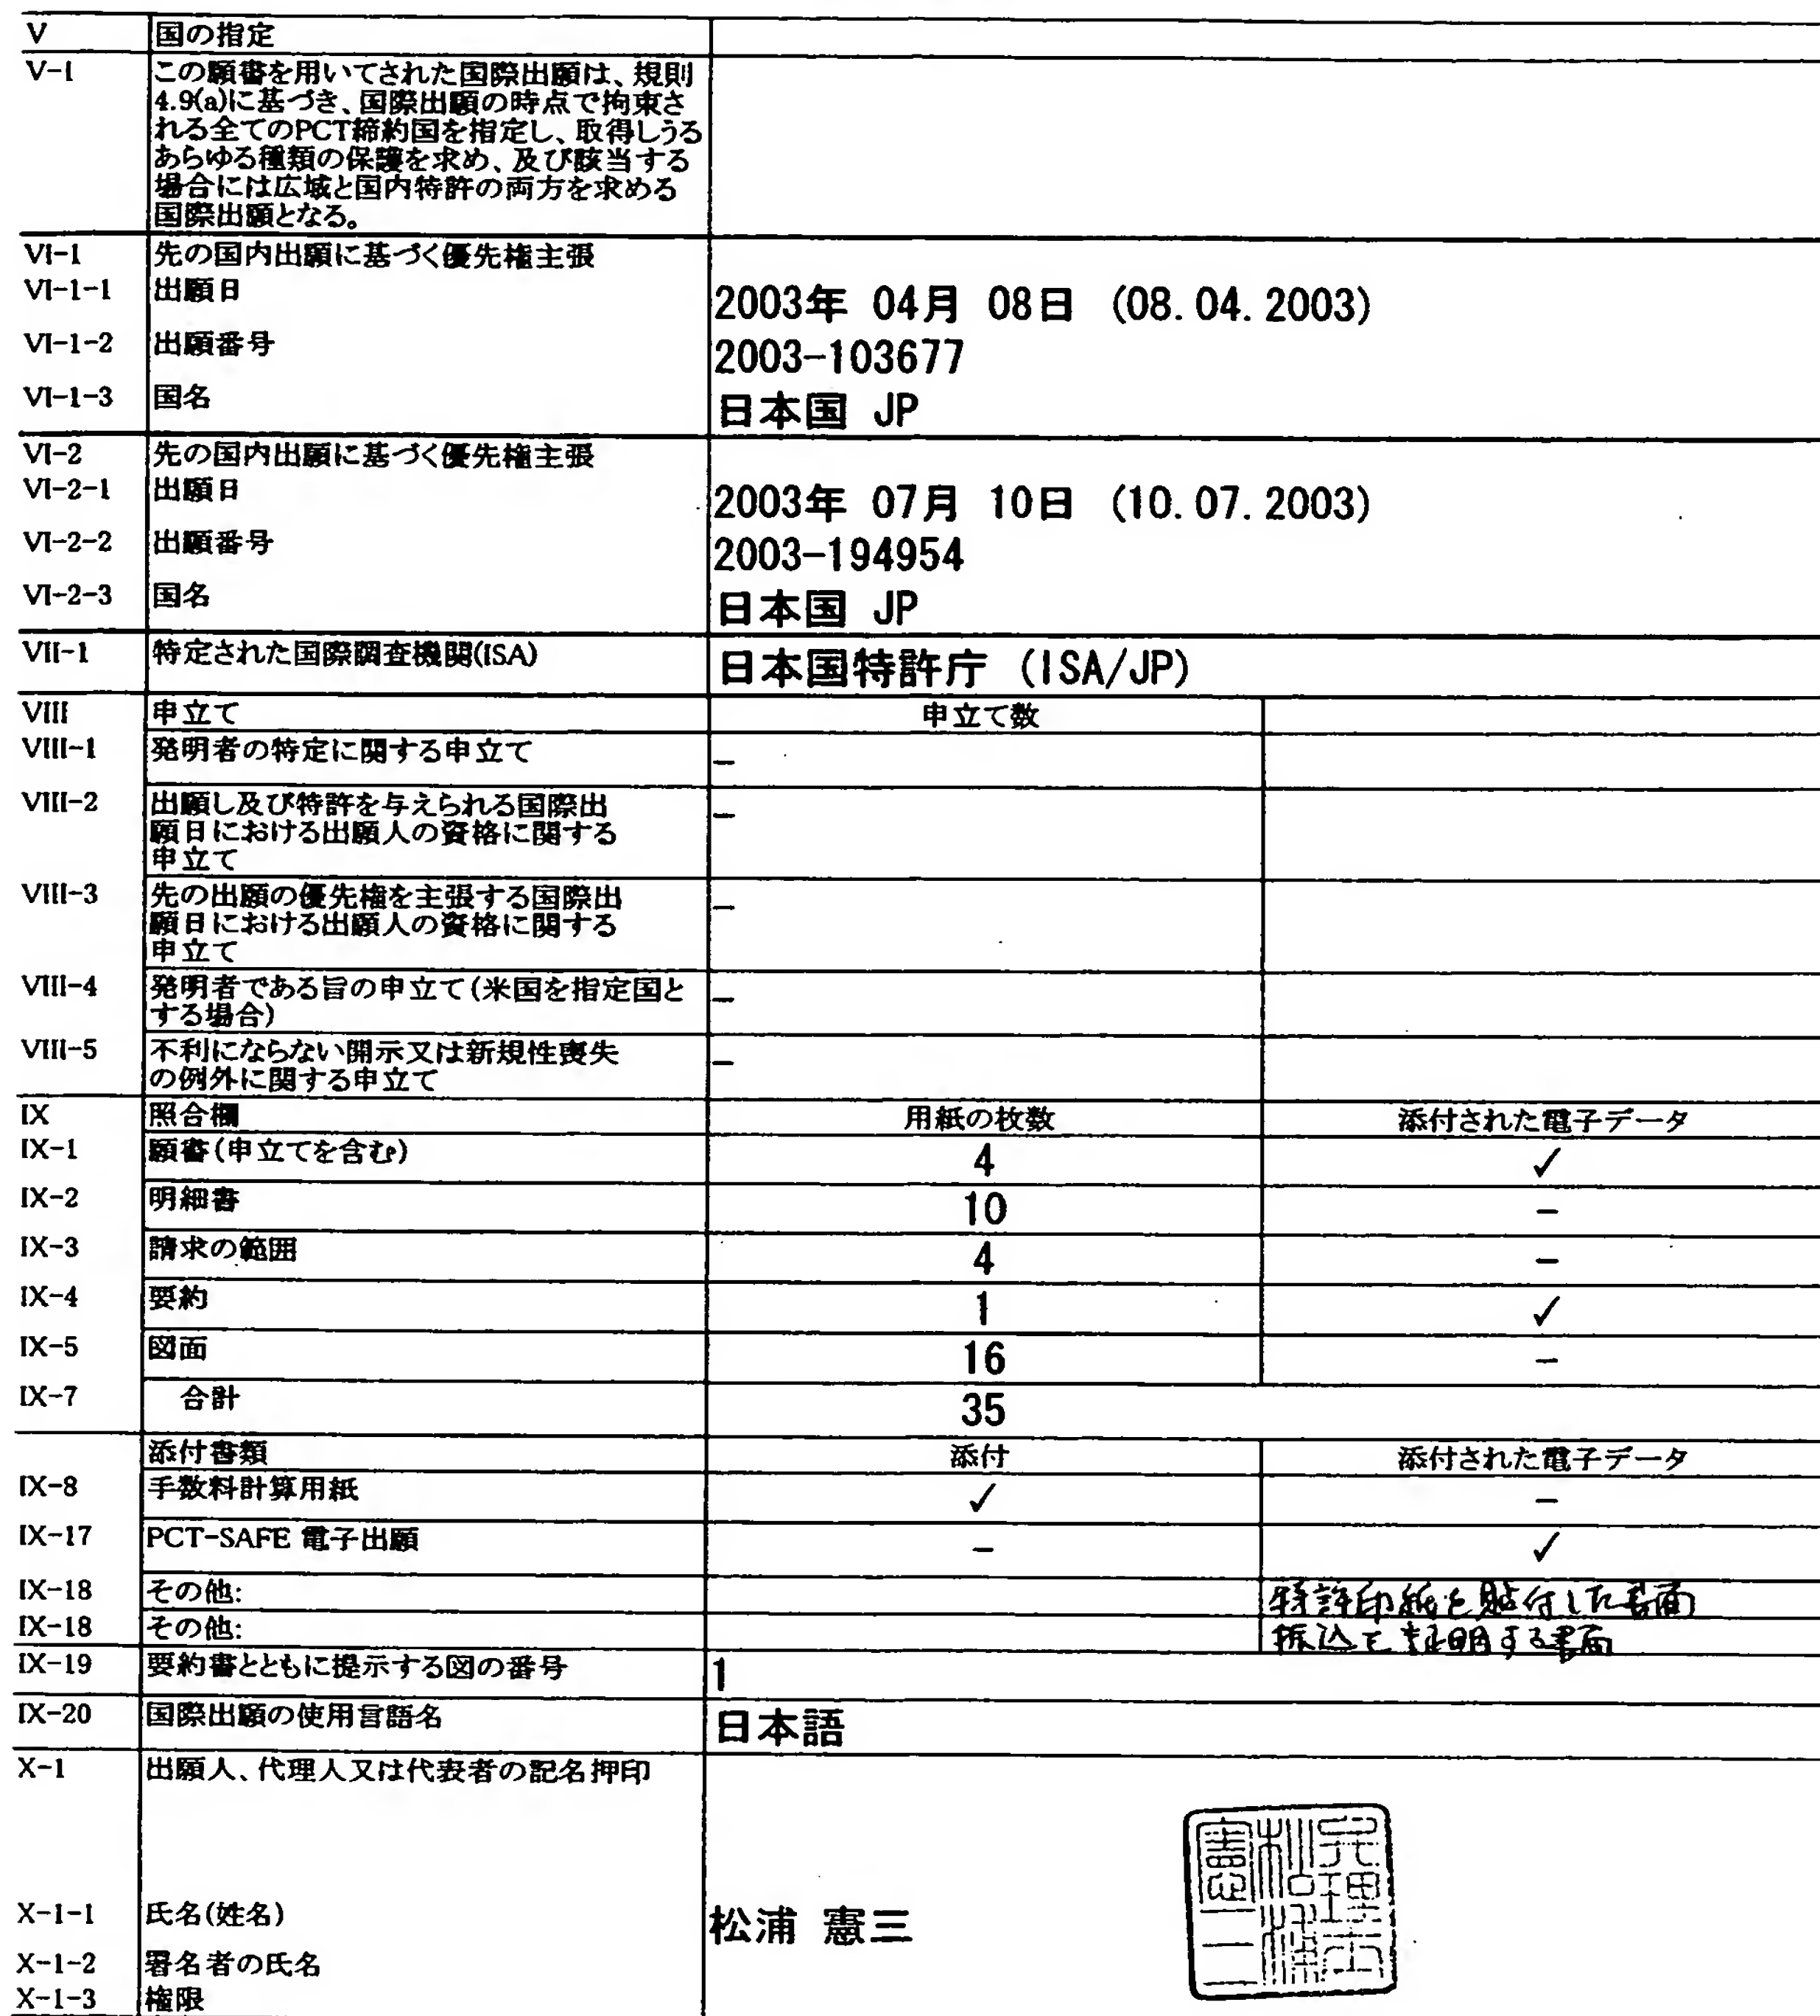 V 国の指定
V-1 この願書を用いてされた国際出願は、規則
4.9(a)に基づき、国際出願の時点で拘束さ
れる全てのPCT締約国を指定し、取得しうる
あらゆる種類の保護を求め、及び該当する
場合には広域と国内特許の両方を求める
国際出願となる。
VI-1 先の国内出願に基づく優先権主張
VI-1-1 出願日 2003年 04月 08日 (08.04.2003)
VI-1-2 出願番号 2003-103677
VI-1-3 国名 日本国 JP
VI-2 先の国内出願に基づく優先権主張
VI-2-1 出願日 2003年 07月 10日 (10.07.2003)
VI-2-2 出願番号 2003-194954
VI-2-3 国名 日本国 JP
VII-1 特定された国際調査機関(ISA) 日本国特許庁 (ISA/JP)
VIII 申立て 申立て数
VIII-1 発明者の特定に関する申立て –
VIII-2 出願し及び特許を与えられる国際出 –
願日における出願人の資格に関する
申立て
VIII-3 先の出願の優先権を主張する国際出 –
願日における出願人の資格に関する
申立て
VIII-4 発明者である旨の申立て(米国を指定国と –
する場合)
VIII-5 不利にならない開示又は新規性喪失 –
の例外に関する申立て
IX 照合欄 用紙の枚数 添付された電子データ
IX-1 願書(申立てを含む) 4 ✓
IX-2 明細書 10 –
IX-3 請求の範囲 4 –
IX-4 要約 1 ✓
IX-5 図面 16 –
IX-7 合計 35
添付書類 添付 添付された電子データ
IX-8 手数料計算用紙 ✓ –
IX-17 PCT-SAFE 電子出願 – ✓
IX-18 その他: 特許印紙を貼付した書面
IX-18 その他: 振込を証明する書面
IX-19 要約書とともに提示する図の番号 1
IX-20 国際出願の使用言語名 日本語
X-1 出願人、代理人又は代表者の記名押印
X-1-1 氏名(姓名) 松浦 憲三
X-1-2 署名者の氏名
X-1-3 権限